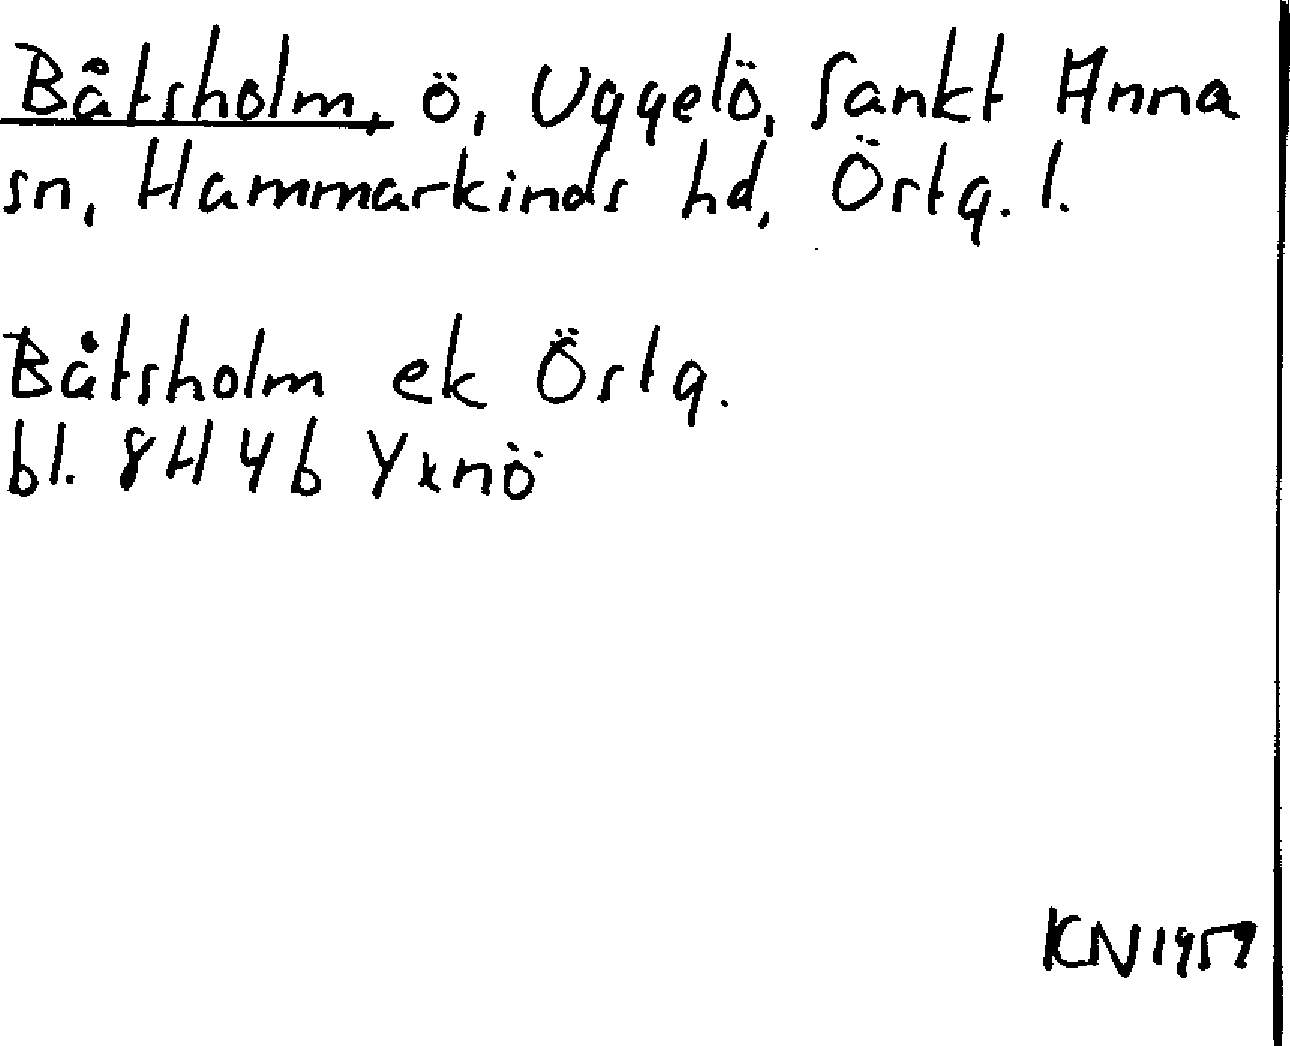 Båtsholm, ö, Uggelö, Sankt Anna
sn, Hammarkinds hd, Östg. l.
Båtsholm ek Östg.
bl. 8H4b Yxnö
KN1959